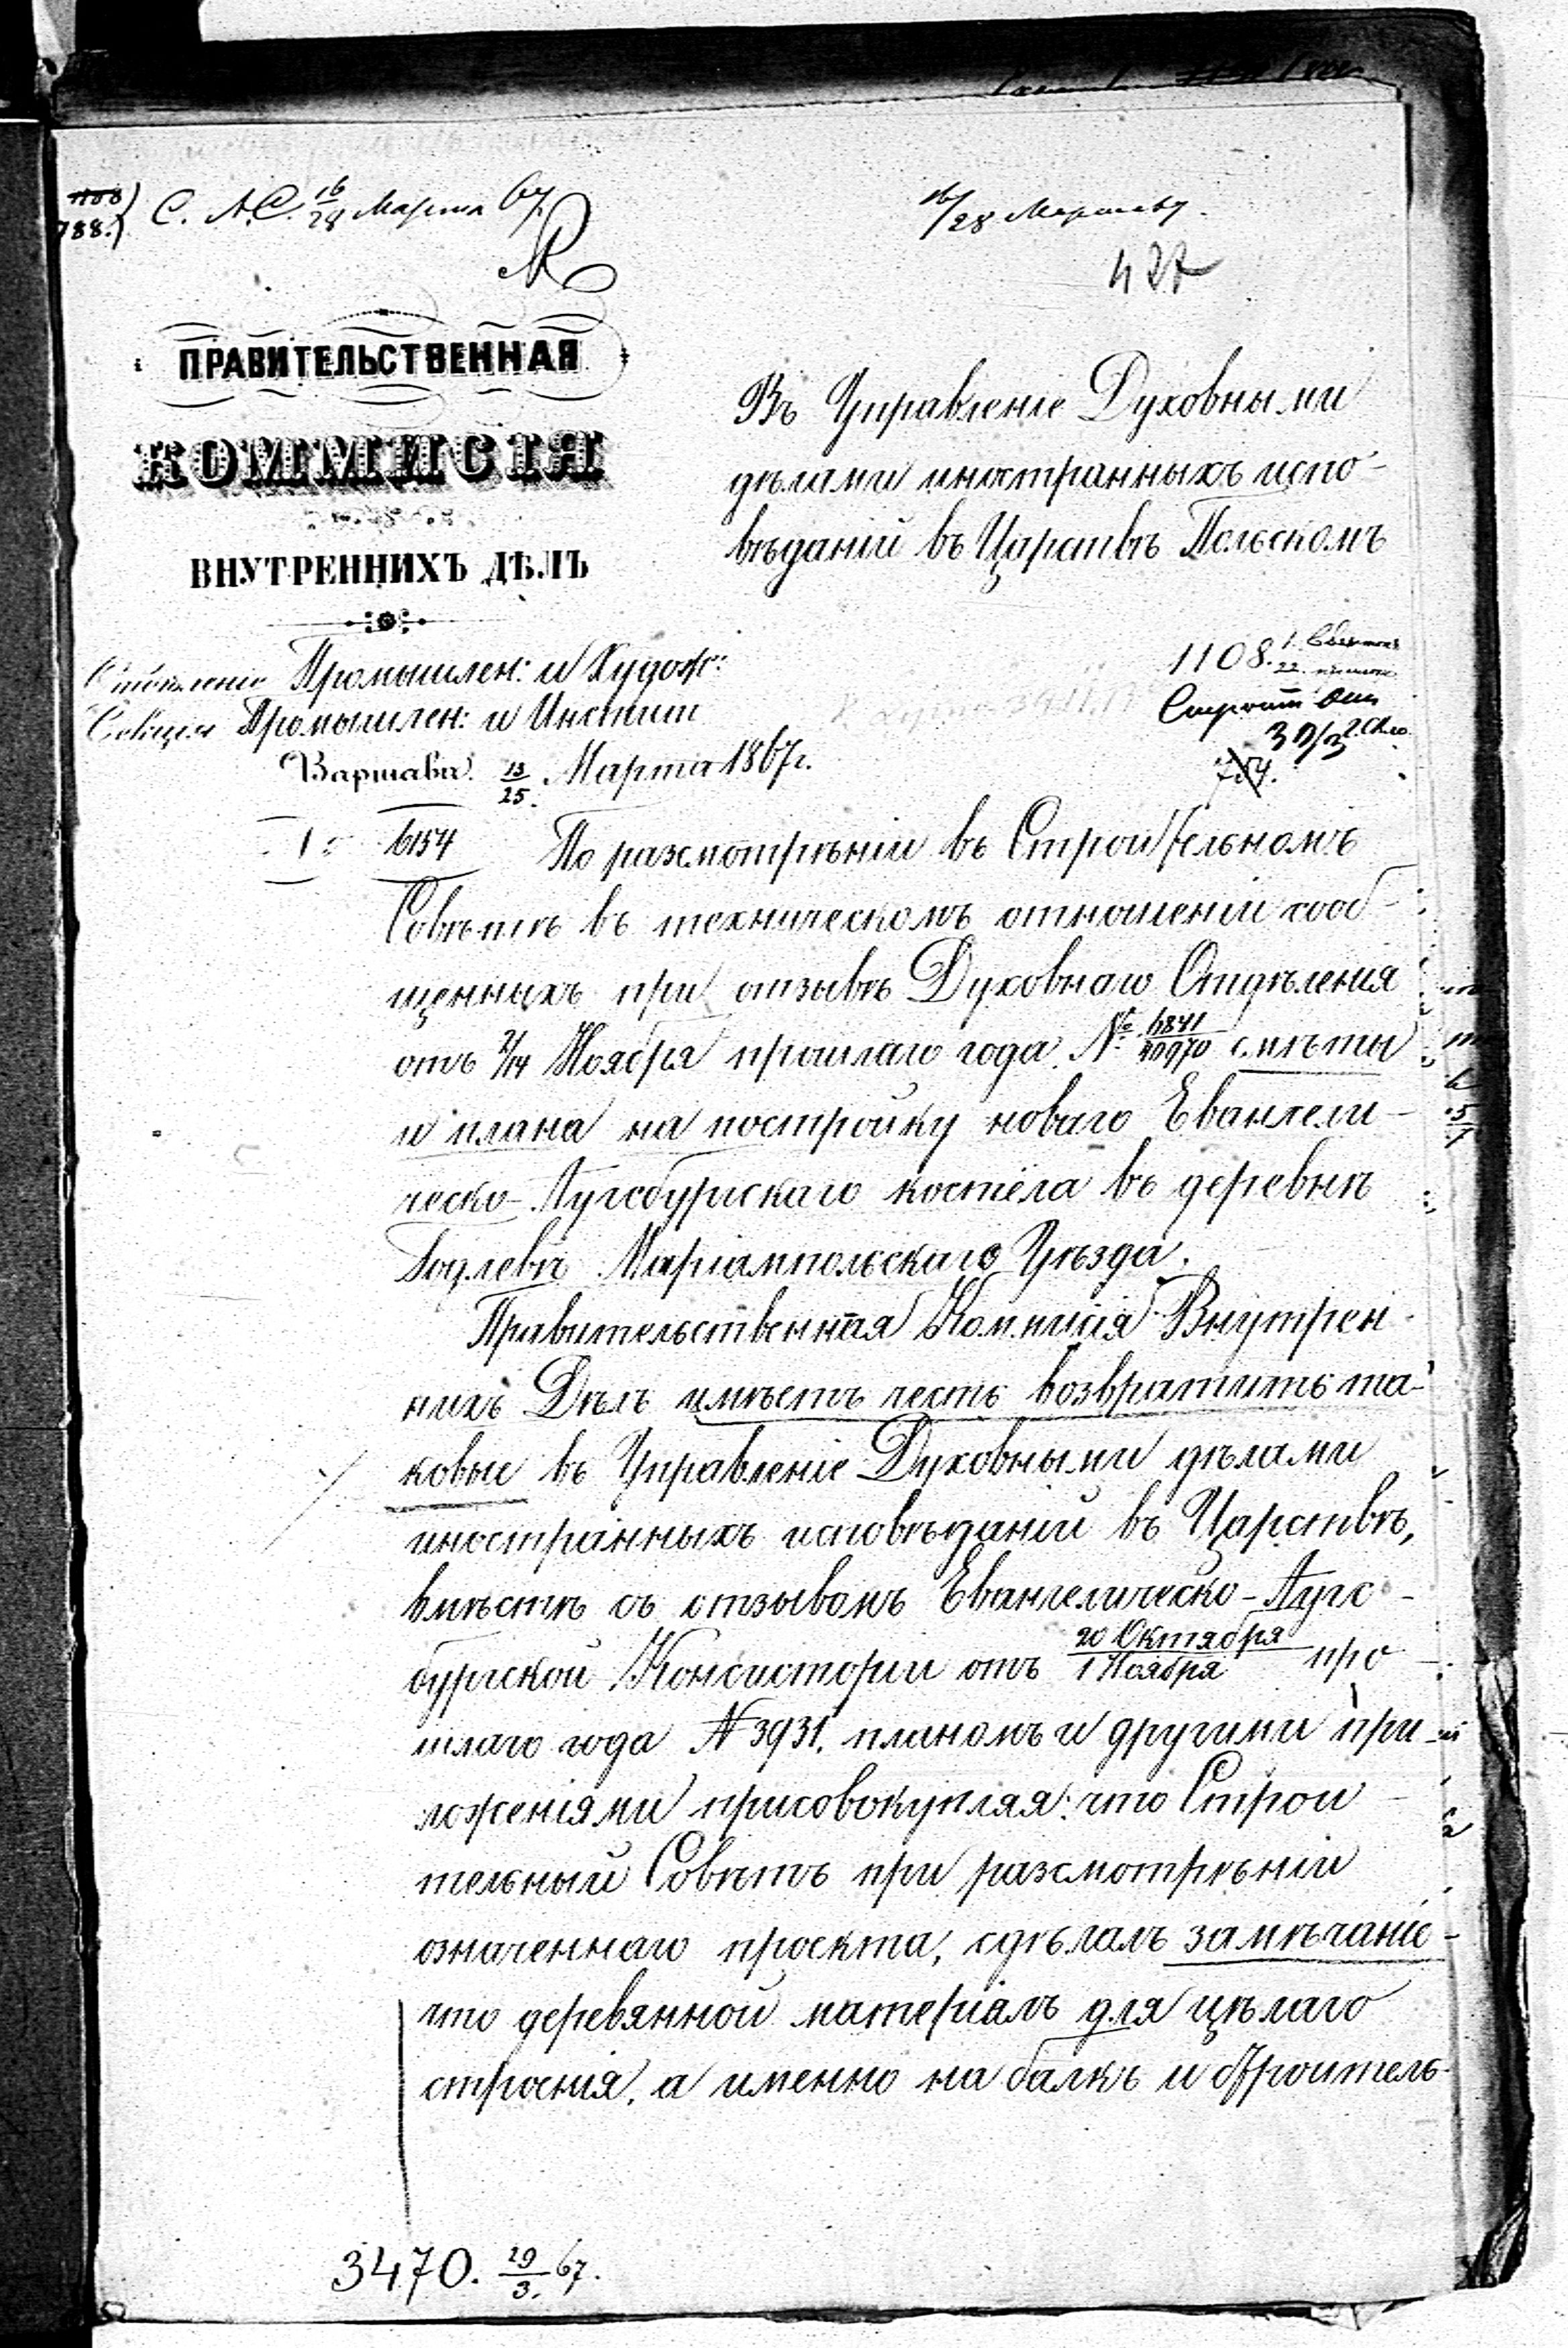 788.)
С. А. С. 16/28 Марта 67.
16/28 Марта 67.
427
ПРАВИТЕЛЬСТВЕННАЯ
КОММИСІЯ
ВНУТРЕННИХЪ ДѢЛЪ
Въ Управленіе Духовными
дѣлами иностранныхъ испо-
вѣданій въ Царствѣ Польскомъ
Отдѣленіе Промышлен: и Худож:
Секція Промышлен: и Инстит
Варшава 13/25 Марта 1867 г.
6154
1108.
754.
По разсмотрѣніи въ Строительномъ
Совѣтѣ въ техническомъ отношеніи сооб-
щенныхъ при отзывѣ Духовнаго Отдѣленія
отъ 2/14 Ноября прошлаго года № смѣты
и плана на постройку новаго Евангели-
ческо-Аугсбургскаго костёла въ деревнѣ
Годлево Маріампольскаго Уѣзда.
Правительственная Коммисія Внутрен
нихъ Дѣлъ имѣетъ честь возвратить та-
ковые въ Управленіе Духовными дѣлами
иностранныхъ исповѣданій въ Царствѣ,
вмѣстѣ съ отзывомъ Евангелическо-Аугс-
бургской Консисторіи отъ 20 Октября/1 Ноября про-
шлаго года № 3931. планомъ и другими при-
ложеніями присовокупляя: что Строи-
тельный Совѣтъ при разсмотрѣніи
означеннаго проекта, сдѣлалъ замѣчаніе-
что деревянной матеріалъ для цѣлаго
строенія, а именно на балкъ и строитель-
3470. 29/3. 67.